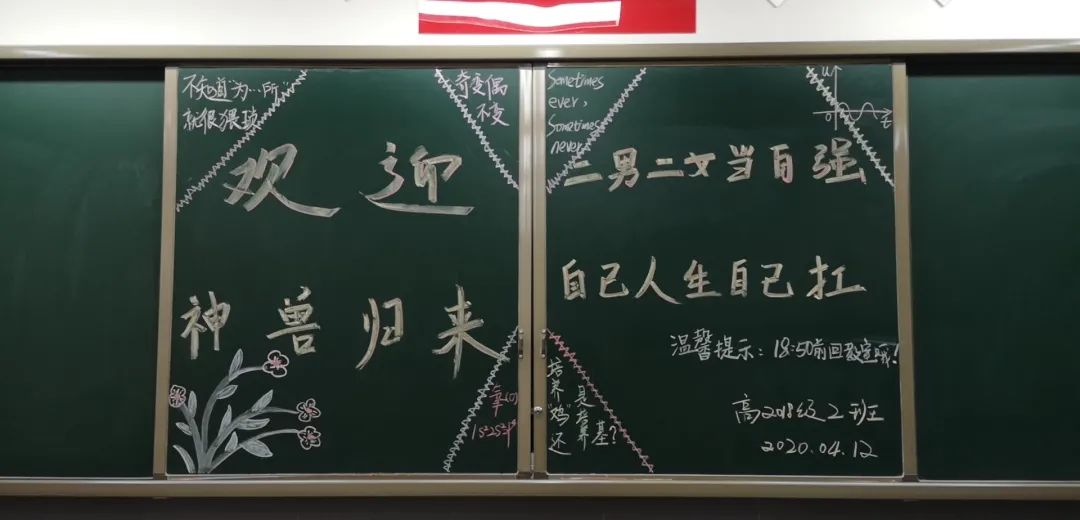 不知道"为…所"
就很猥琐
奇变偶
不变
欢迎
神兽归来
1s²2s²2p⁴
Sometimes
ever,
Sometimes
never
二男二女当自强
自己人生自己扛
温馨提示：18:50前回教室哦！
高2018级2班
2020.04.12
培养"鸡"还
是培养基？